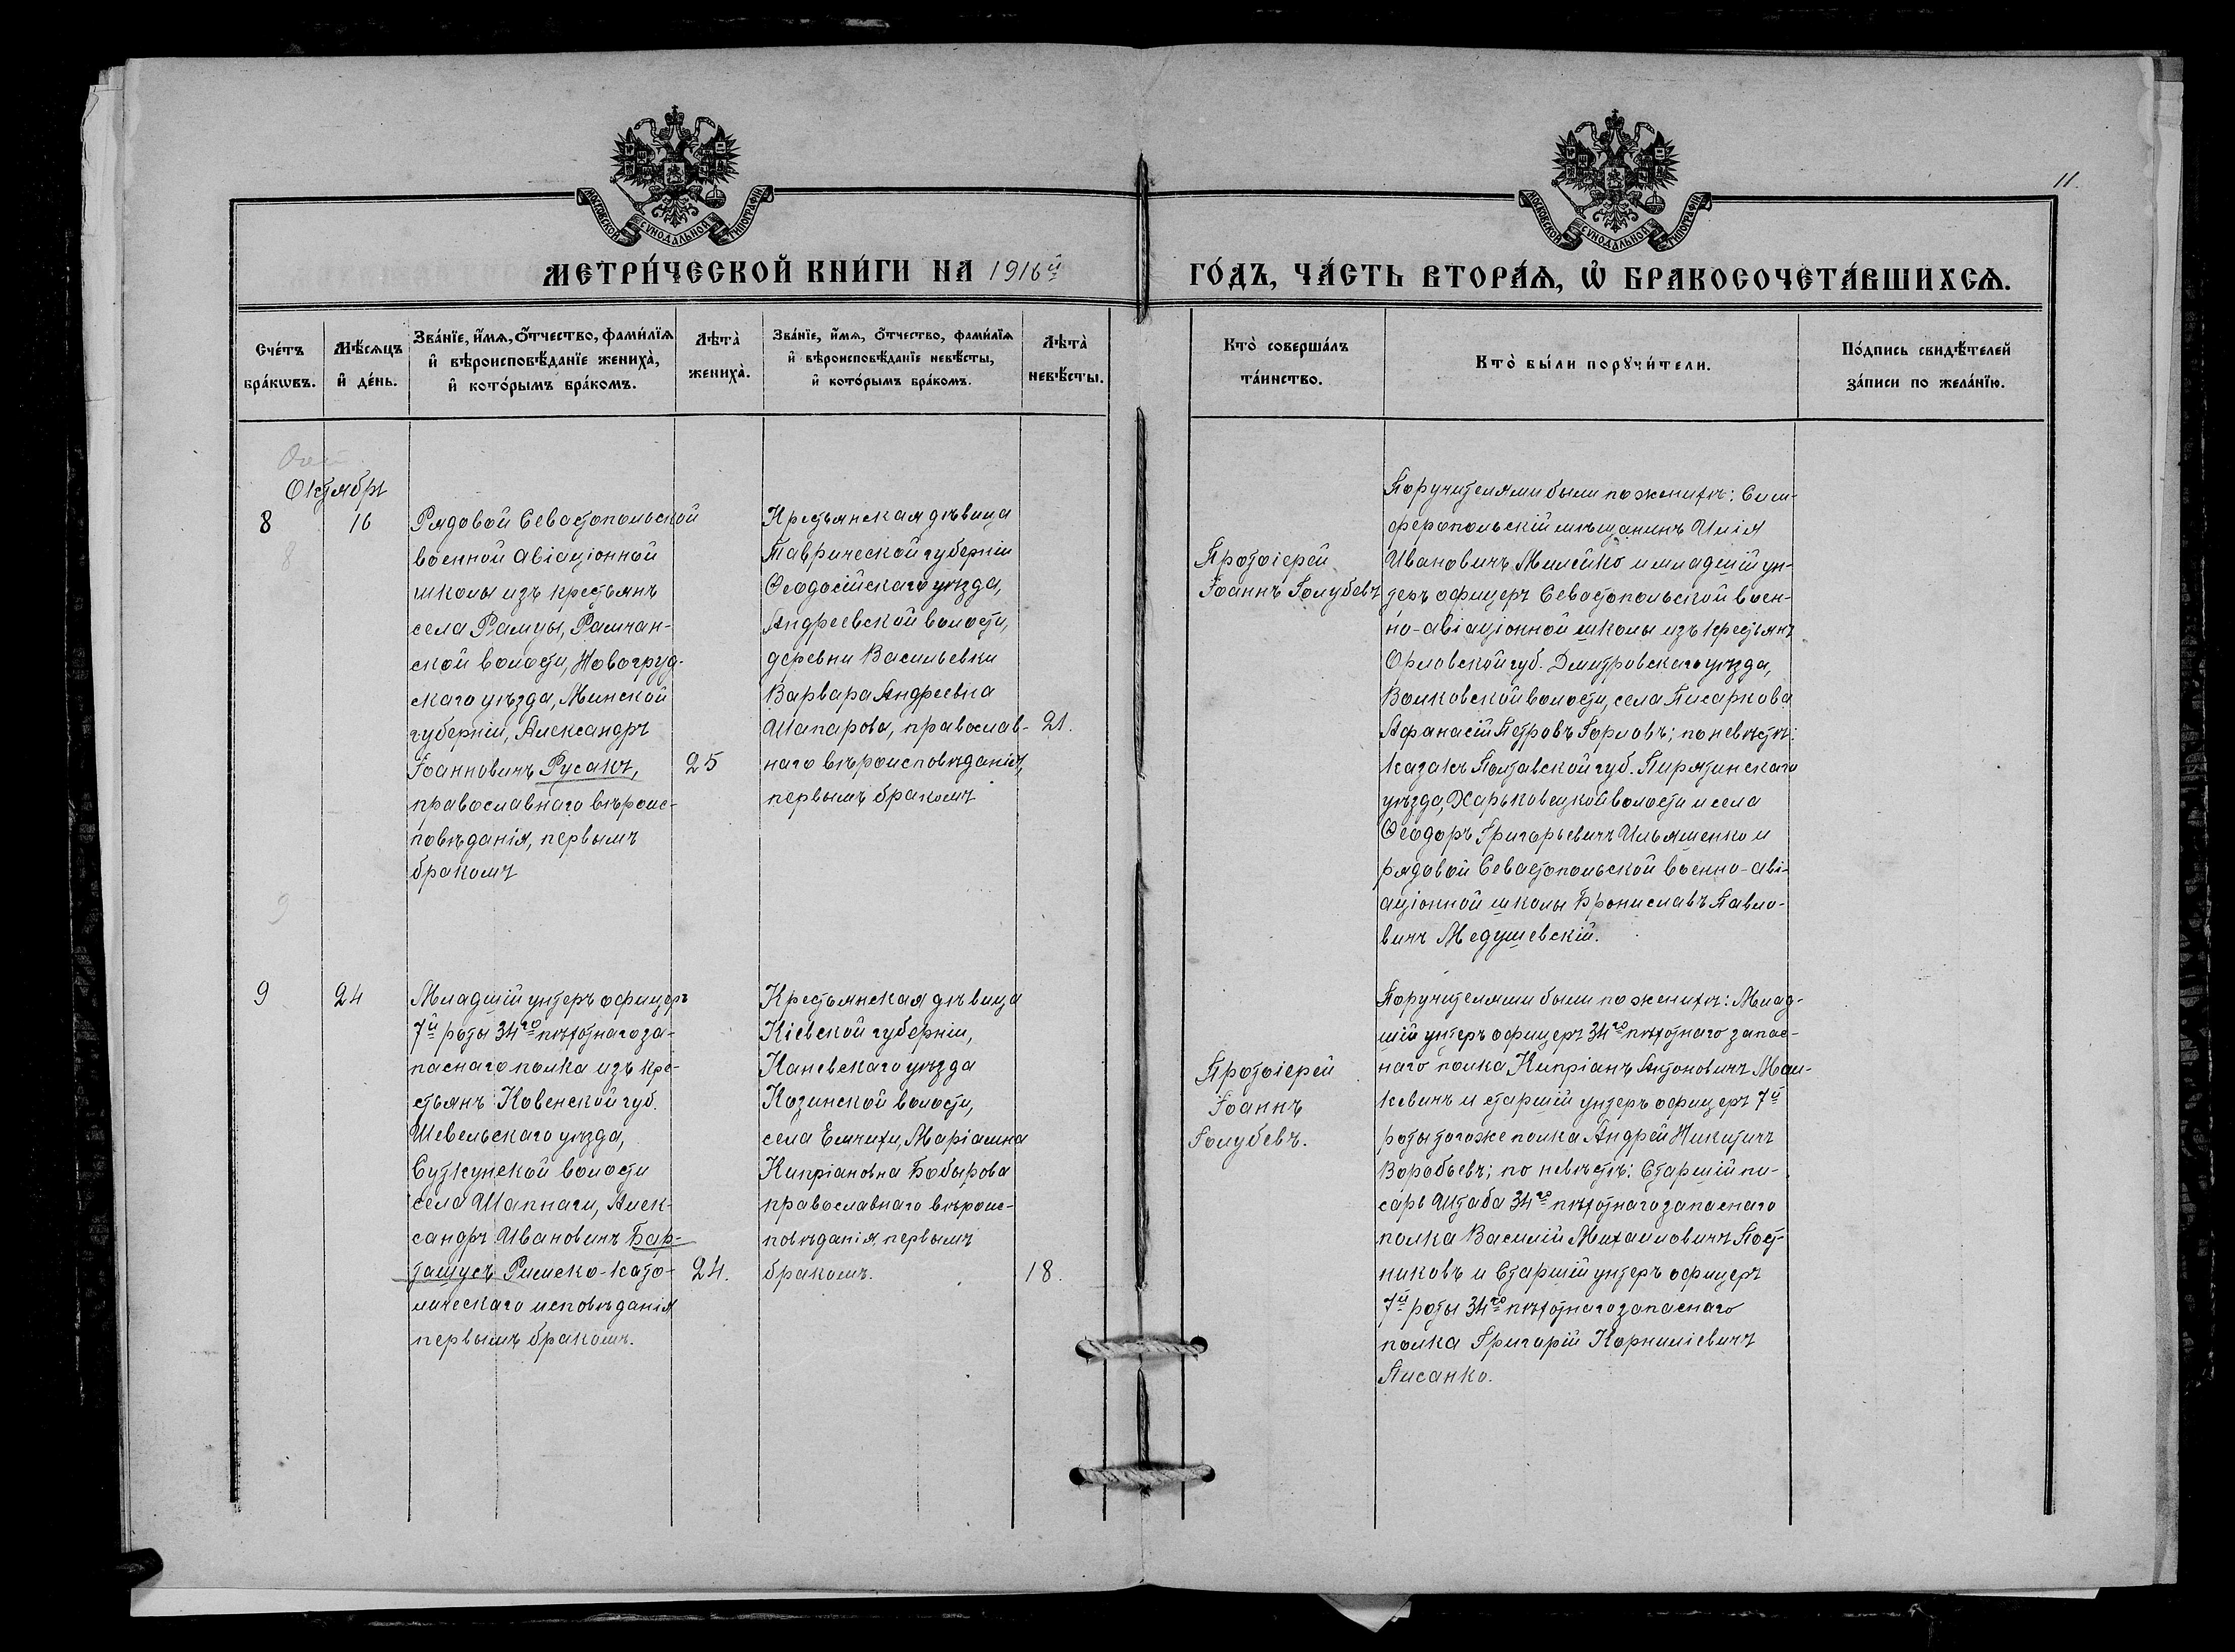 11.
МОСКОВСКОЙ СѴНОДАЛЬНОЙ ТИПОГРАФІИ
МОСКОВСКОЙ СѴНОДАЛЬНОЙ ТИПОГРАФІИ
МЕТРИ́ЧЕСКОЙ КНИ́ГИ НА 1916й
ГО́ДЪ, ЧА́СТЬ ВТОРА́Ѧ, Ѡ҆ БРАКОСОЧЕТА́ВШИХСѦ.
Сче́тъ
бра́кѡвъ.
Мѣ́сѧцъ
и҆ де́нь.
Зва́нїе, и҆́мѧ, ѻ҆́тчество, фами́лїѧ
и҆ вѣроисповѣ́данїе жениха̀,
и҆ кото́рымъ бра́комъ.
Лѣта̀
жениха̀.
Зва́нїе, и҆́мѧ, ѻ҆́тчество, фами́лїѧ
и҆ вѣроисповѣ́данїе невѣ́сты,
и҆ кото́рымъ бра́комъ.
Лѣта̀
невѣ́сты.
Кто̀ соверша́лъ
та́инство.
Кто̀ бы́ли порꙋчи́тели.
По́дпись свидѣ́телей
за́писи по жела́нїю.
Октябрь
8
16
8
Рядовой Севастопольской
военной авіаціонной
школы изъ крестьянъ
села Рамцы, Рамчан-
ской волости, Новогруд-
скаго уѣзда, Минской
губерніи, Александръ
Іоанновичъ Русакъ,
православнаго вѣроис-
повѣданія, первымъ
бракомъ
25
Крестьянская дѣвица
Таврической губерніи
Ѳеодосійскаго уѣзда,
Андреевской волости,
деревни Васильевки
Варвара Андреевна
Шапарова, православ-
наго вѣроисповѣданія,
первымъ бракомъ
21.
Протоіерей
Іоаннъ Голубевъ
Поручителями были по женихѣ: Сим-
феропольскій мѣщанинъ Илія
Ивановичъ Милейко и младшій ун-
теръ офицеръ Севастопольской воен-
но-авіаціонной школы изъ крестьянъ
Орловской губ. Дмитровскаго уѣзда,
Волковской волости, села Писаркова
Афанасій Петровъ Горловъ; по невѣстѣ:
казакъ Полтавской губ. Пирятинскаго
уѣзда, Харьковецкой волости и села
Ѳеодоръ Григорьевичъ Ильяшенко и
рядовой Севастопольской военно-аві-
аціонной школы Брониславъ Павло-
вичъ Медушевскій.
9
9
24
Младшій унтеръ офицеръ
7й роты 34го пѣхотнаго за-
паснаго полка изъ кре-
стьянъ Ковенской губ.
Шевельскаго уѣзда,
Суткунской волости
села Шапнаги, Алек-
сандръ Ивановичъ Бар-
ташусъ Римско-като-
лическаго исповѣданія
первымъ бракомъ.
24.
Крестьянская дѣвица
Кіевской губерніи,
Каневскаго уѣзда
Козинской волости,
села Емчихи, Маріамна
Кипріановна Бобырова
православнаго вѣроис-
повѣданія первымъ
бракомъ.
18.
Протоіерей
Іоаннъ
Голубевъ.
Поручителями были по женихѣ: Млад-
шій унтеръ офицеръ 34го пѣхотнаго запас-
наго полка Кипріанъ Антоновичъ
и старшій унтеръ офицеръ 7й
роты того же полка Андрей Никитичъ
Воробьевъ; по невѣстѣ: Старшій пи-
сарь Штаба 34го пѣхотнаго запаснаго
полка Василій Михаиловичъ Пост-
никовъ и Старшій унтеръ офицеръ
7й роты 34го пѣхотнаго запаснаго
полка Григорій Корниліевичъ
Писанко.